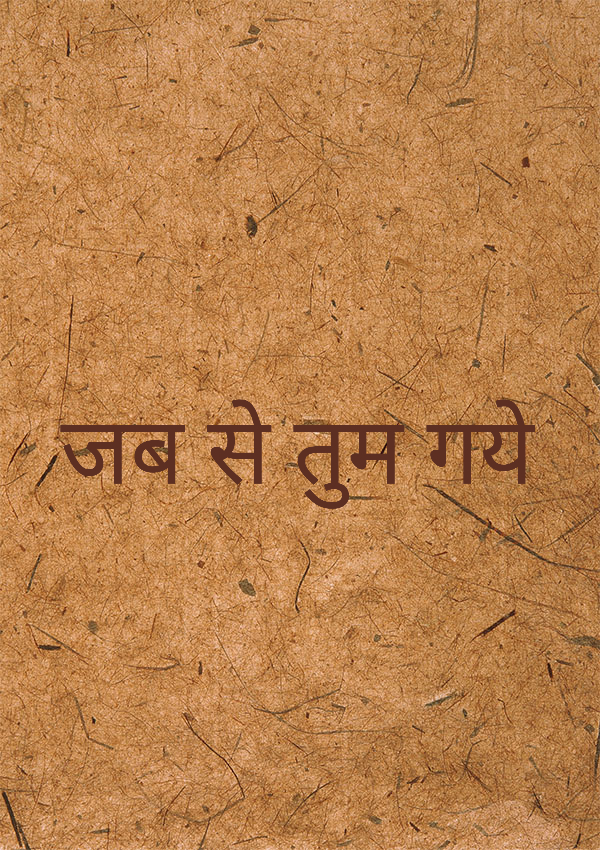 जब से तुम गये